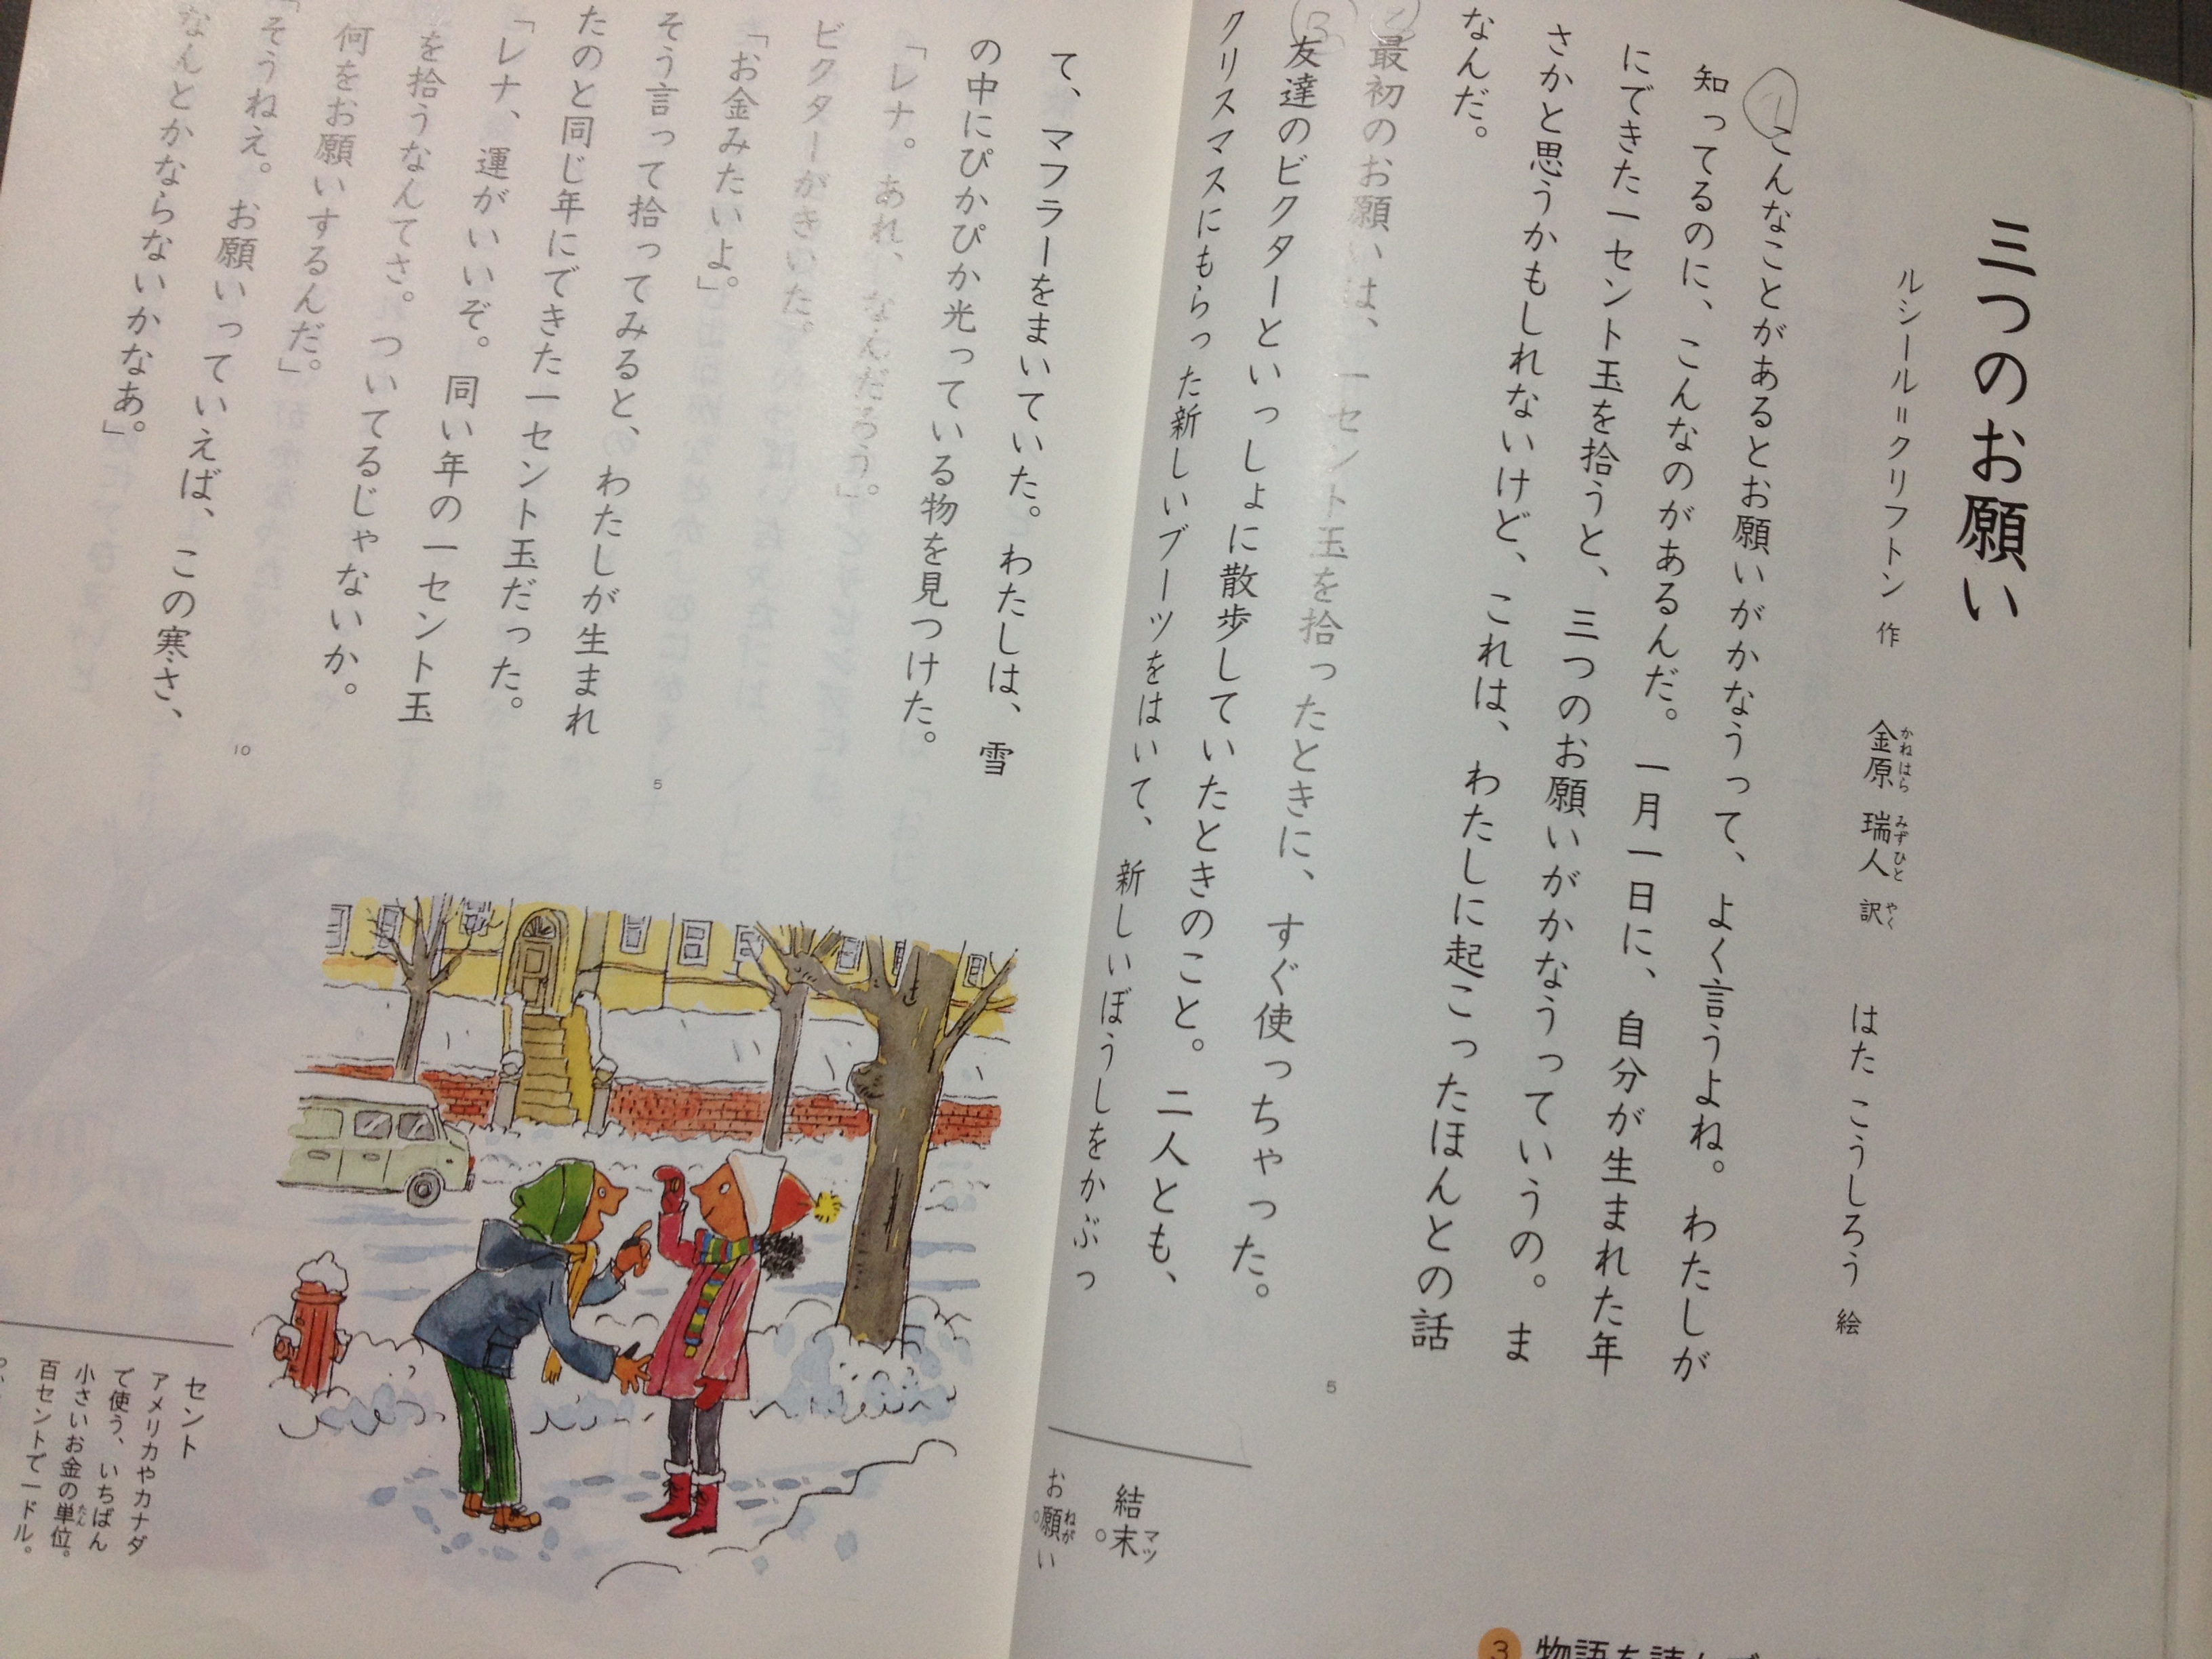 三つのお願い
ルシール＝クリフトン 作 金原 瑞人 訳 はた こうしろう 絵
かねはら みずひと やく
① こんなことがあるとお願いがかなうって、よく言うよね。わたしが
知ってるのに、こんなのがあるんだ。一月一日に、自分が生まれた年
にできた一セント玉を拾うと、三つのお願いがかなうっていうの。ま
さかと思うかもしれないけど、これは、わたしに起こったほんとの話
なんだ。
② 最初のお願いは、一セント玉を拾ったときに、すぐ使っちゃった。
③ 友達のビクターといっしょに散歩していたときのこと。二人とも、
クリスマスにもらった新しいブーツをはいて、新しいぼうしをかぶっ
5
結末
マツ
お願い
ねが
3 物語を読んで
て、マフラーをまいていた。わたしは、雪
の中にぴかぴか光っている物を見つけた。
「レナ。あれ、なんだろう。」
ビクターがきいた。
「お金みたいよ。」
そう言って拾ってみると、わたしが生まれ
たのと同じ年にできた一セント玉だった。
「レナ、運がいいぞ。同い年の一セント玉
を拾うなんてさ。ついてるじゃないか。
何をお願いするんだ。」
「そうねえ。お願いっていえば、この寒さ、
なんとかならないかなあ。」
5
10
セント
アメリカやカナダ
で使う、いちばん
小さいお金の単位。
たん
百セントで一ドル。